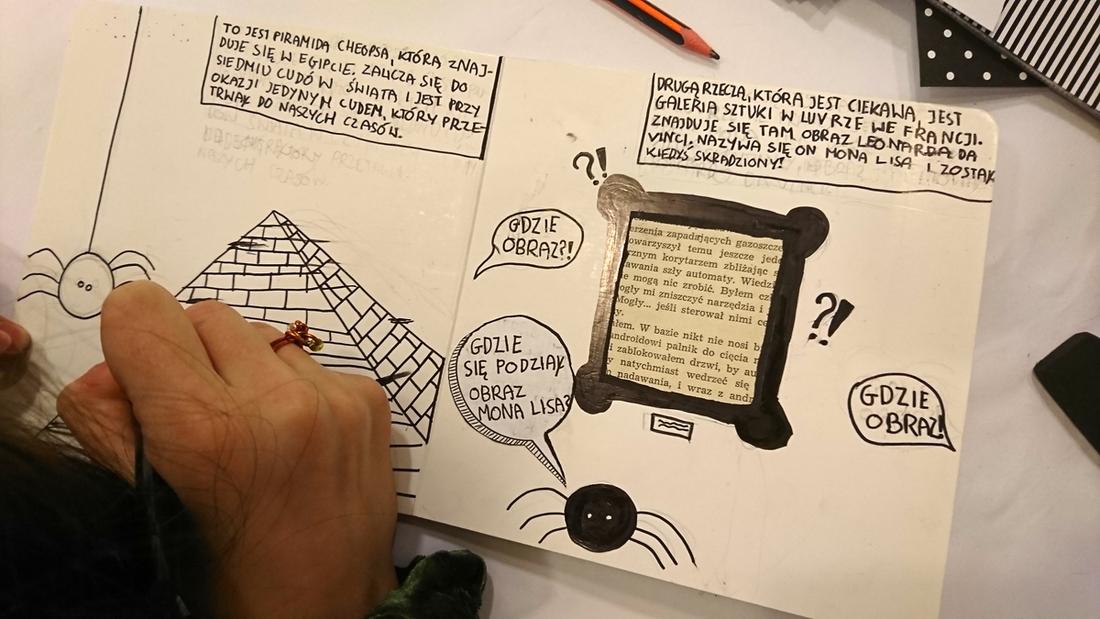 TO JEST PIRAMIDA CHEOPSA, KTÓRA ZNAJ-
DUJE SIĘ W EGIPCIE. ZALICZA SIĘ DO
SIEDMIU CUDÓW ŚWIATA I JEST PRZY
OKAZJI JEDYNYM CUDEM, KTÓRY PRZE-
TRWAŁ DO NASZYCH CZASÓW.
DRUGĄ RZECZĄ, KTÓRA JEST CIEKAWA, JEST
GALERIA SZTUKI W LUVRZE WE FRANCJI.
ZNAJDUJE SIĘ TAM OBRAZ LEONARDA DA
VINCI. NAZYWA SIĘ ON MONA LISA I ZOSTAŁ
KIEDYŚ SKRADZIONY!
?!
GDZIE
OBRAZ?!
erzenia zapadających gazoszcze
owarzyszył temu jeszcze jede
cznym korytarzem zbliżając s
awania szły automaty. Wiedzi
e mogą nie zrobić. Byłem cz
ogły mi zniszczyć narzędzia i
Mogły... jeśli sterował nimi ce
y.
łem. W bazie nikt nie nosi b
androidowi palnik do cięcia
i zablokowałem drzwi, by au
y natychmiast wedrzeć się
nadawania, i wraz z andr
?!
GDZIE
SIĘ PODZIAŁ
OBRAZ
MONA LISA?
GDZIE
OBRAZ!